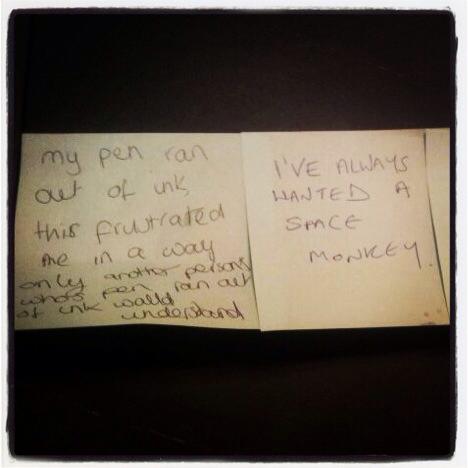 my pen ran
out of ink
this frustrated
me in a way
only another person
who's pen ran out
of ink would
understand
I'VE ALWAYS
WANTED A
SPACE
MONKEY.